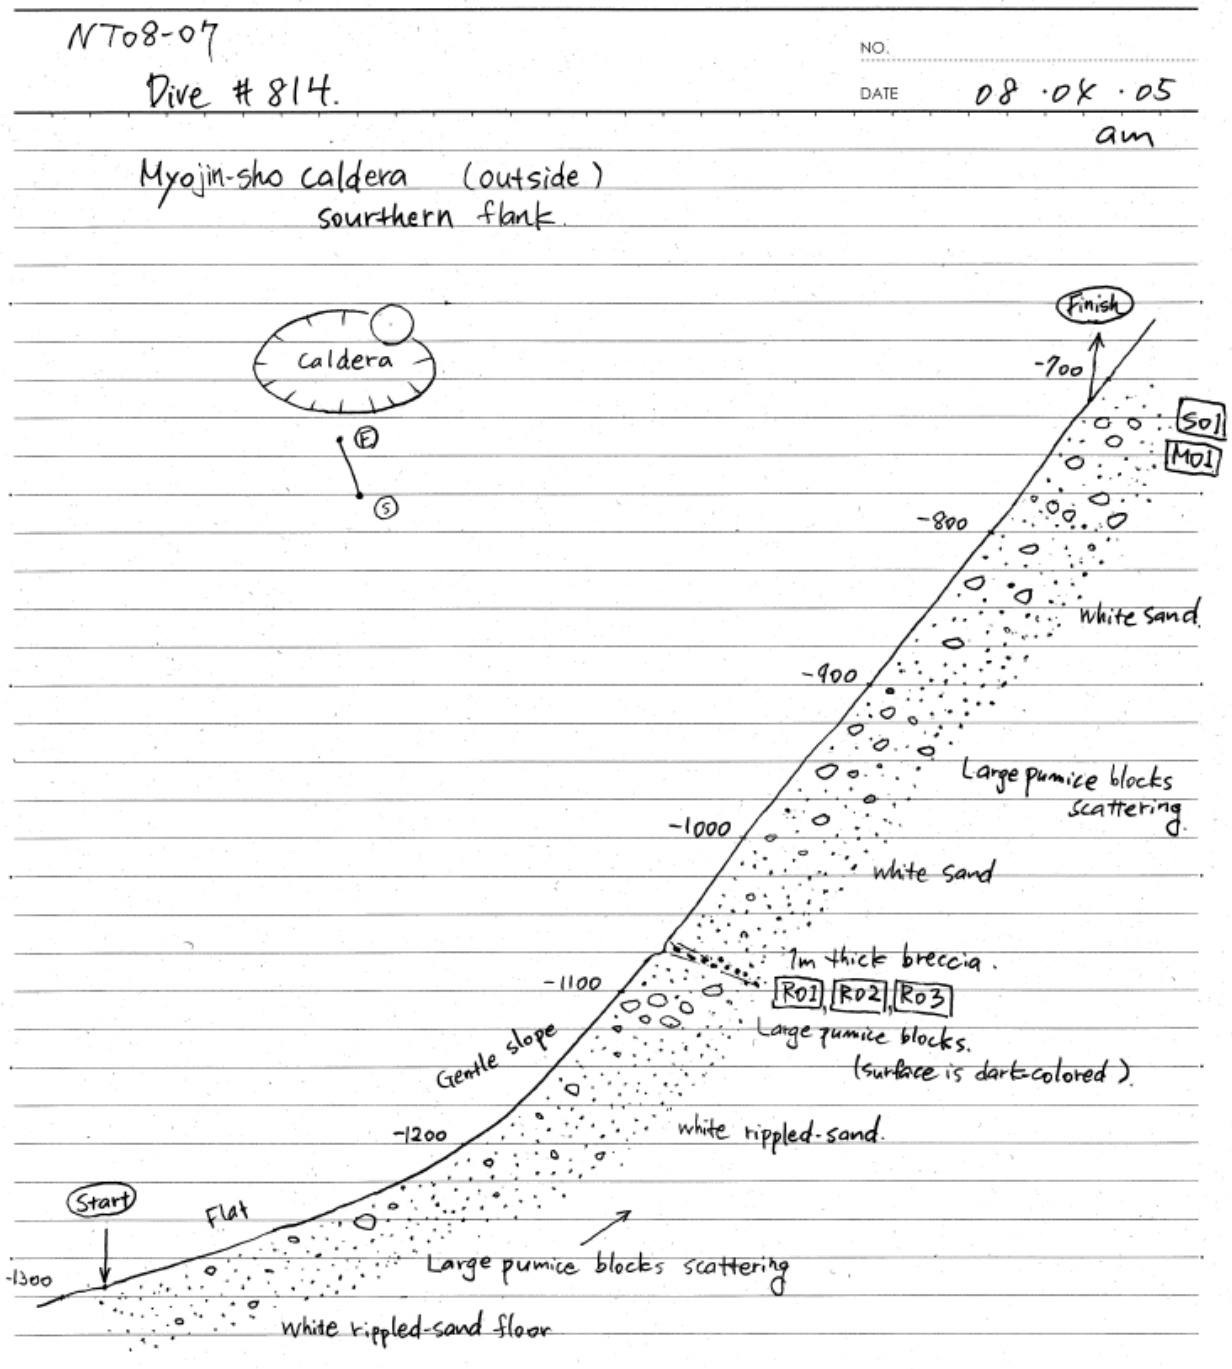 NT08-07
Dive # 814.
NO.
DATE 08.04.05
am
Myojin-sho caldera (outside)
sourthern flank.
Finish
caldera
-700
S01
M01
F
S
-800
white sand.
-900
Large pumice blocks
scattering.
-1000
white sand
1m thick breccia.
-1100
R01, R02, R03
Large pumice blocks.
(surface is dark-colored).
Gentle slope
-1200
white rippled-sand.
Start
Flat
Large pumice blocks scattering
-1300
white rippled-sand floor